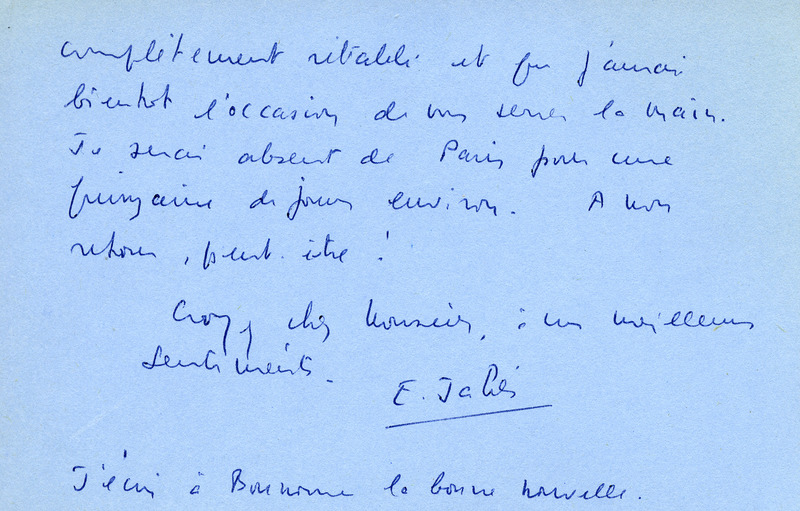 complètement rétabli et que j'aurai
bientôt l'occasion de vous serrer la main.
Je serai absent de Paris pour une
quinzaine de jours environ. A mon
retour, peut-être !
Croyez, cher Monsieur, à mes meilleurs
sentiments.
E. Jabès
J'écris à Bounoure la bonne nouvelle.